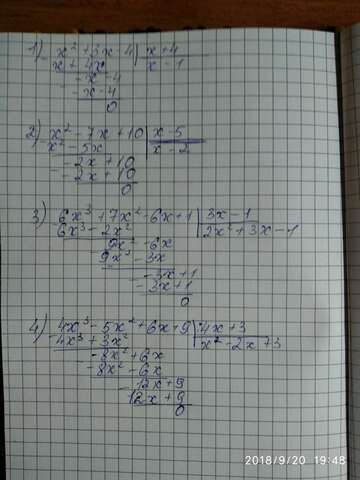 1) x² + 3x - 4 | x + 4
x + 4x | x - 1
- x - 4
- x - 4
0
2) x² - 7x + 10 | x - 5
x² - 5x | x - 2
- 2x + 10
- 2x + 10
0
3) 6x³ + 7x² - 6x + 1 | 3x - 1
6x³ - 2x² | 2x² + 3x - 1
9x² - 6x
9x² - 3x
- 3x + 1
- 3x + 1
0
4) 4x³ - 5x² + 6x + 9 | 4x + 3
4x³ + 3x² | x² - 2x + 3
- 8x² + 6x
- 8x² - 6x
12x + 9
12x + 9
0
2018/9/20 19:48